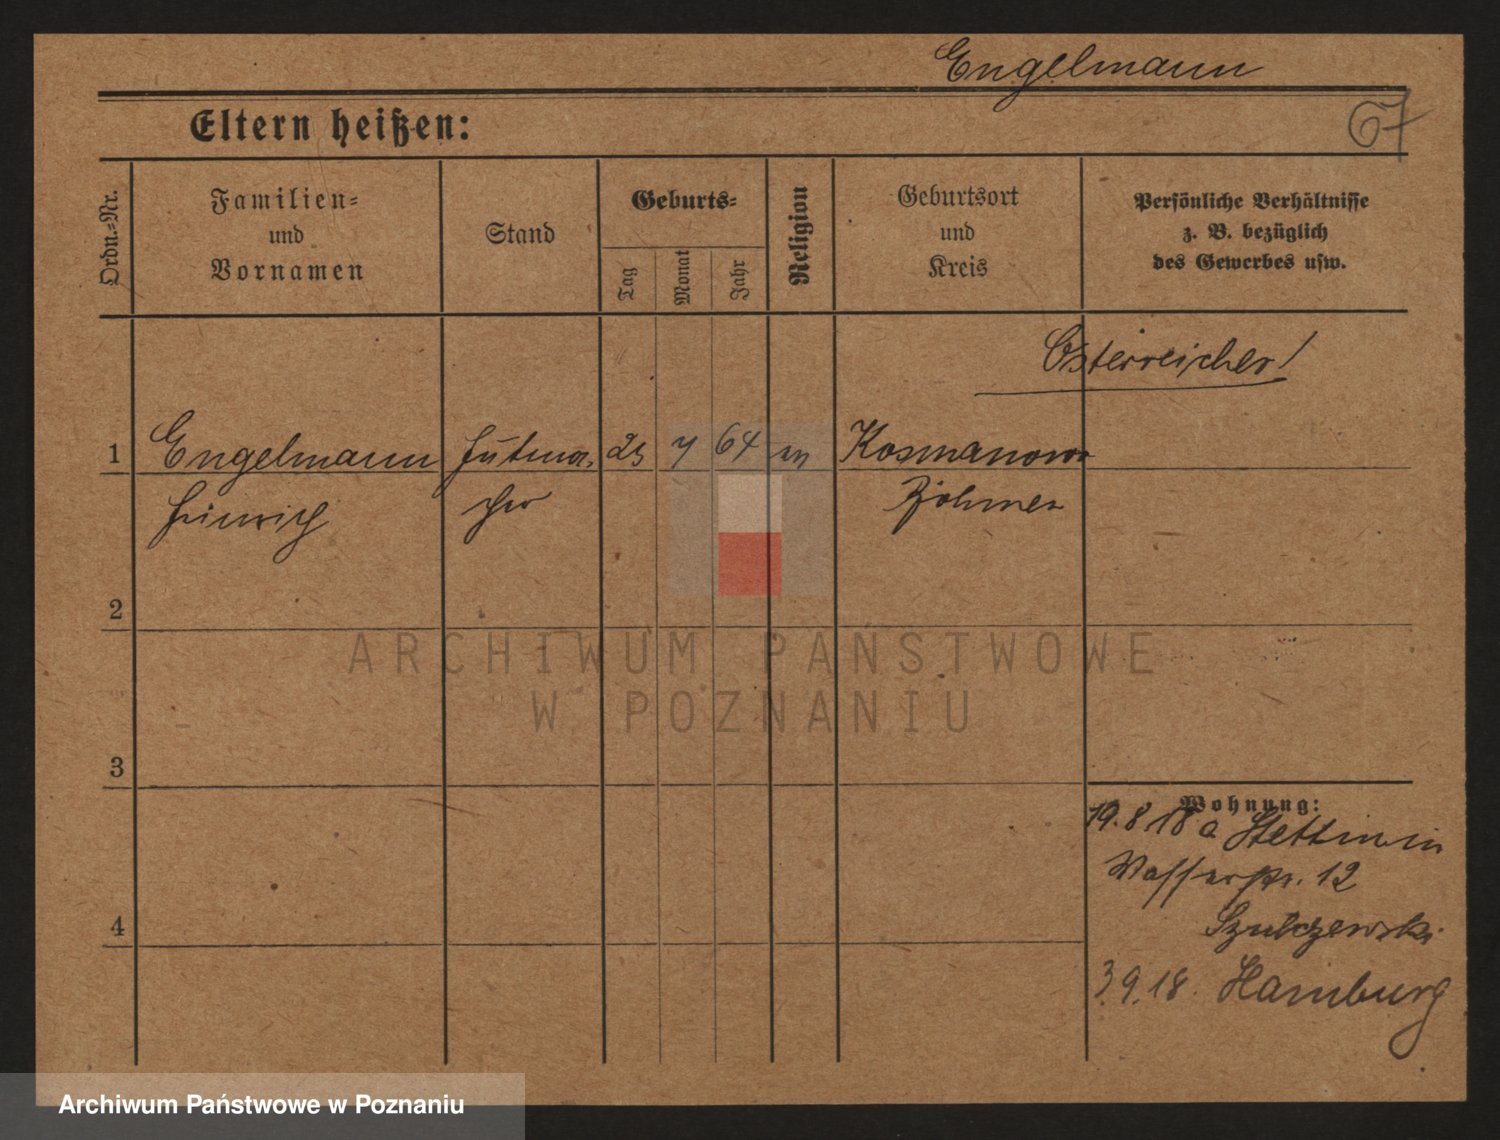 Engelmann
67
Eltern heißen:
Ordn.-Nr.
Familien-
und
Vornamen
Stand
Geburts-
Tag
Monat
Jahr
Religion
Geburtsort
und
Kreis
Persönliche Verhältnisse
z. B. bezüglich
des Gewerbes usw.
Österreicher!
1 Engelmann Hutma- 7 64 Kosmanows
Heinrich cher Böhmen
2
ARCHIWUM PAŃSTWOWE
W POZNANIU
3
Wohnung:
19.8 18 a Stettin in
Wasserstr. 12
4
Szulczewski
3.9.18. Hamburg
Archiwum Państwowe w Poznaniu